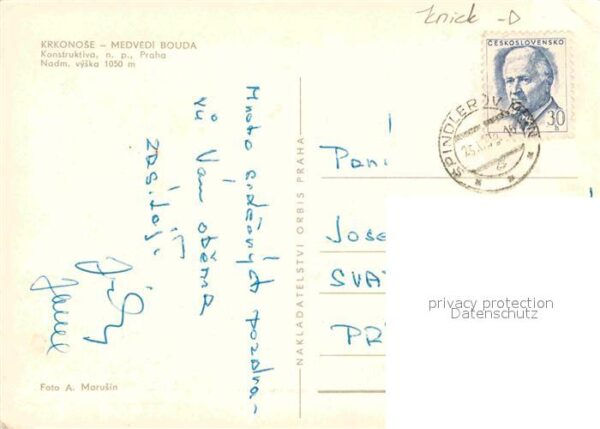 KRKONOŠE – MEDVĚDÍ BOUDA
Konstruktiva, n. p., Praha
Nadm. výška 1050 m
Knick -D
ČESKOSLOVENSKO
30
h
ŠPINDLERŮV MLÝN
Mnoho srdečných pozdra-
vů Vám oběma
zasílají
Jarek
NAKLADATELSTVÍ ORBIS PRAHA
Paní
Jose
SVA
PR
privacy protection
Datenschutz
Foto A. Marušin